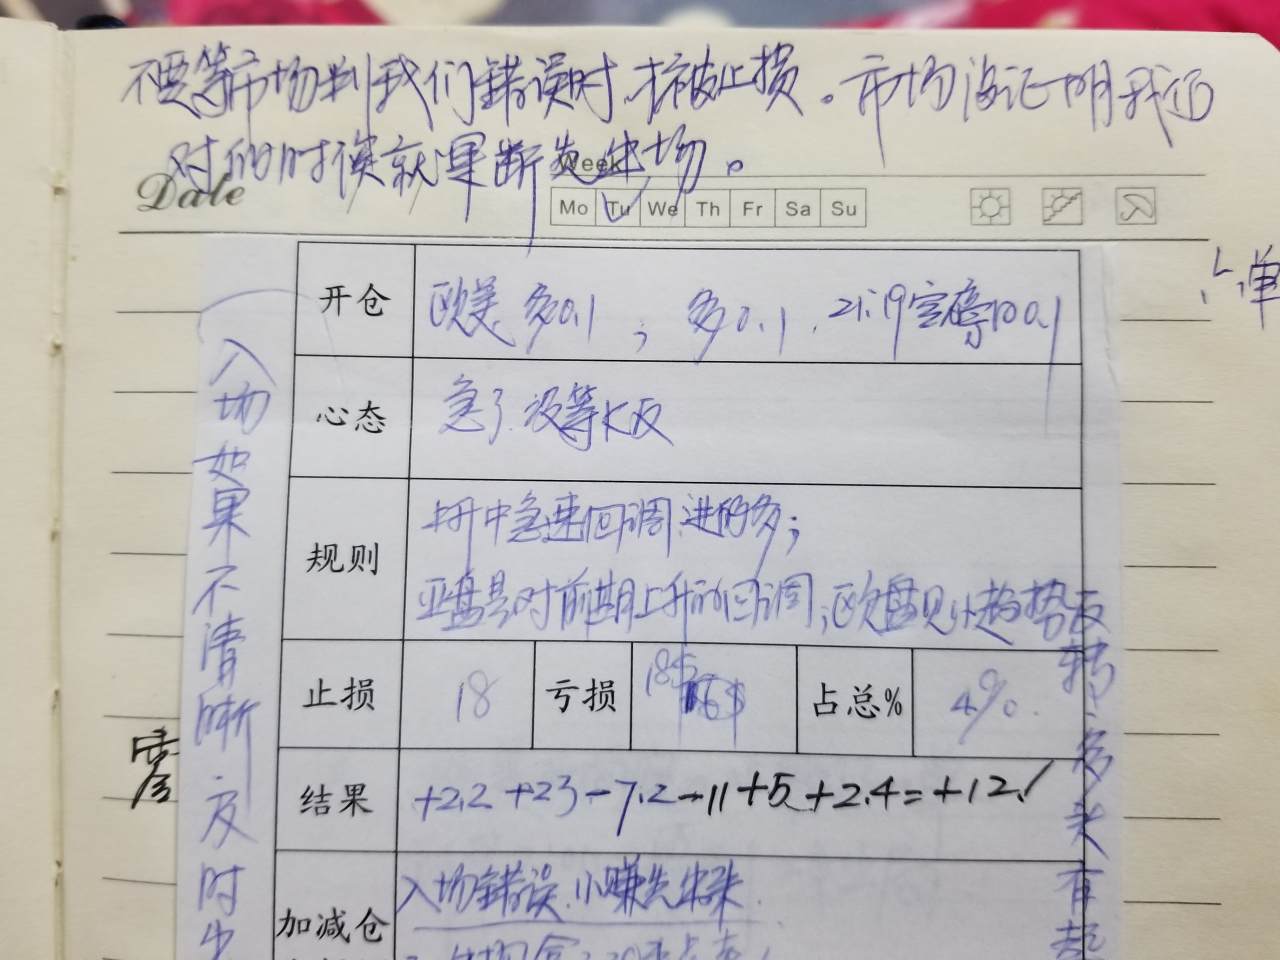 不要等市场判我们错误时,才被止损。市场没证明我们
对的时候就果断先出场。
Week
Date
Mo Tu We Th Fr Sa Su
单
开仓 欧美多0.1 ; 多0.1 . 21:19
心态 急了.没等K反
规则 上升中急速回调.进的多;
亚盘是对前期上升的回调;欧盘见小趋势反
转.多头有
止损 18 亏损 18.5 占总% 4%.
结果 +2.2 +23 -7.2 -11 +5 +2.4 = +12.
加减仓 入场错误.小赚先出来.
入场如果不清晰及时出